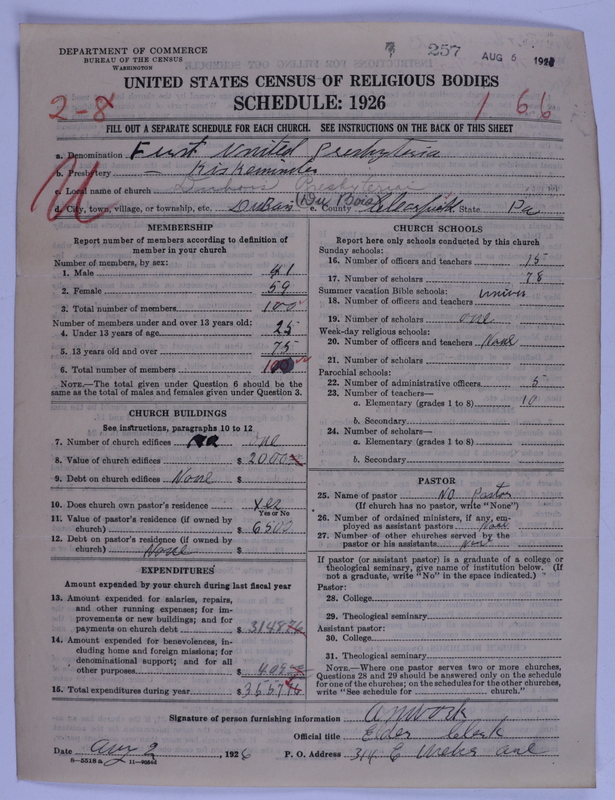 257 AUG 5 192
DEPARTMENT OF COMMERCE
BUREAU OF THE CENSUS
WASHINGTON
UNITED STATES CENSUS OF RELIGIOUS BODIES
SCHEDULE: 1926
2-8
1 66
FILL OUT A SEPARATE SCHEDULE FOR EACH CHURCH. SEE INSTRUCTIONS ON THE BACK OF THIS SHEET
a. Denomination First United Presbyteria
b. Presbytery Kiskeminitas
c. Local name of church Presbyterian
d. City, town, village, or township, etc. DuBois (Du Bois) e. County Clearfield State Pa
MEMBERSHIP
Report number of members according to definition of member in your church
Number of members, by sex:
1. Male 41
2. Female 59
3. Total number of members 100
Number of members under and over 13 years old:
4. Under 13 years of age 25
5. 13 years old and over 75
6. Total number of members 100
NOTE.—The total given under Question 6 should be the same as the total of males and females given under Question 3.
CHURCH BUILDINGS
See instructions, paragraphs 10 to 12
7. Number of church edifices one
8. Value of church edifices $ 2000
9. Debt on church edifices None $
10. Does church own pastor's residence Yes
Yes or No
11. Value of pastor's residence (if owned by church) $ 6500
12. Debt on pastor's residence (if owned by church) None $
EXPENDITURES
Amount expended by your church during last fiscal year
13. Amount expended for salaries, repairs, and other running expenses; for improvements or new buildings; and for payments on church debt $ 3148 76
14. Amount expended for benevolences, including home and foreign missions; for denominational support; and for all other purposes $ 408
15. Total expenditures during year $ 3557 16
CHURCH SCHOOLS
Report here only schools conducted by this church
Sunday schools:
16. Number of officers and teachers 15
17. Number of scholars 78
Summer vacation Bible schools:
18. Number of officers and teachers
19. Number of scholars one
Week-day religious schools:
20. Number of officers and teachers None
21. Number of scholars
Parochial schools:
22. Number of administrative officers 5
23. Number of teachers—
a. Elementary (grades 1 to 8) 10
b. Secondary
24. Number of scholars—
a. Elementary (grades 1 to 8)
b. Secondary
PASTOR
25. Name of pastor No Pastor
(If church has no pastor, write "None")
26. Number of ordained ministers, if any, employed as assistant pastors None
27. Number of other churches served by the pastor or his assistants None
If pastor (or assistant pastor) is a graduate of a college or theological seminary, give name of institution below. (If not a graduate, write "No" in the space indicated.)
Pastor:
28. College
29. Theological seminary
Assistant pastor:
30. College
31. Theological seminary
NOTE.—Where one pastor serves two or more churches, Questions 28 and 29 should be answered only on the schedule for one of the churches; on the schedules for the other churches, write "See schedule for church."
Signature of person furnishing information
Official title Elder Clerk
Date Aug 2, 1926 P. O. Address 314 E Weber ave
8-5518a 11-